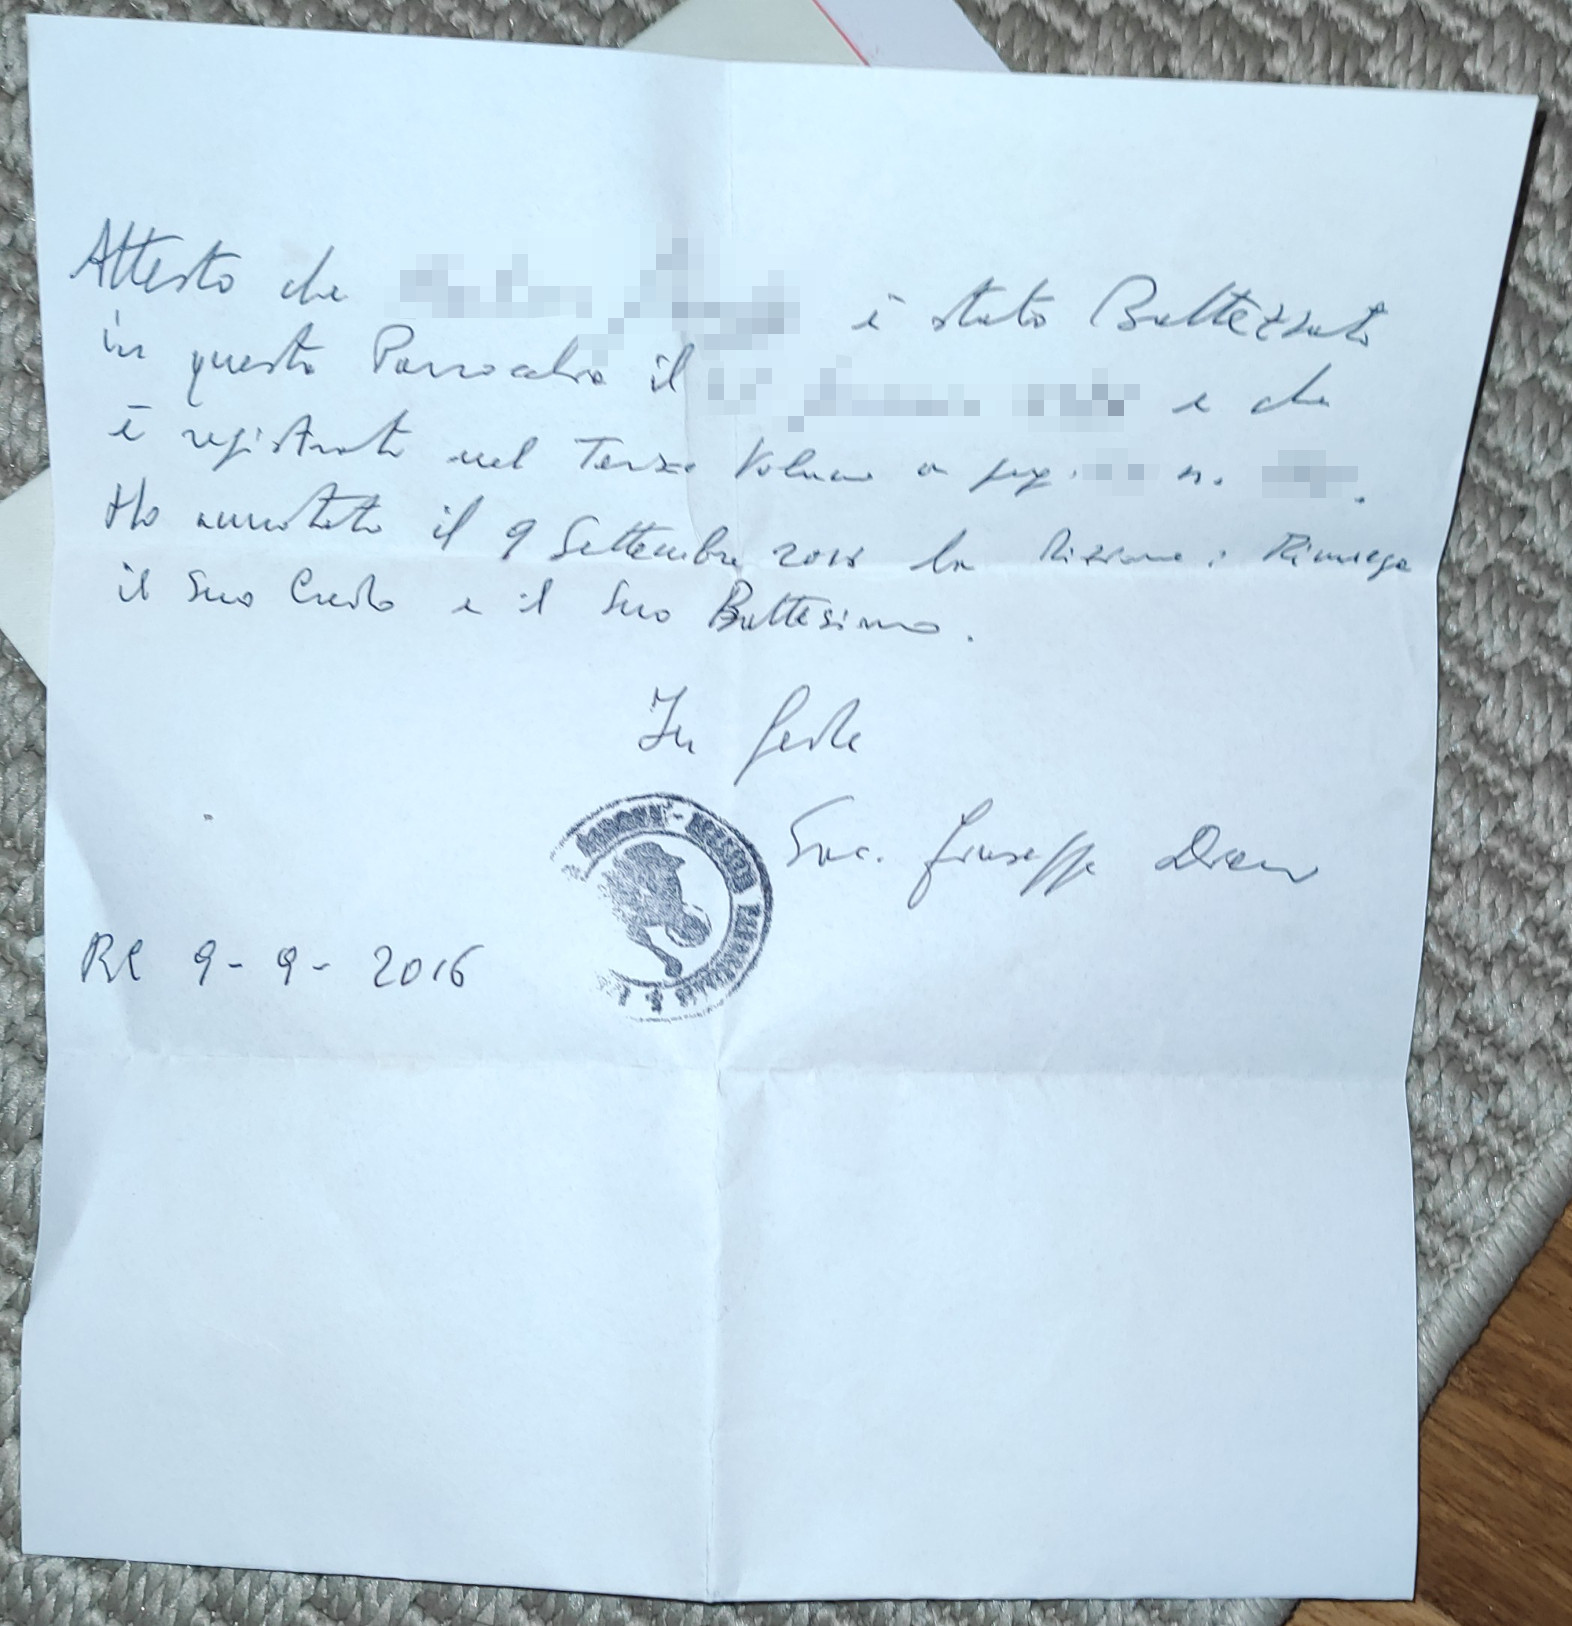 Attesto che è stato Battezzato
in questa Parrocchia il e che
è registrato nel Terzo Volume a pag. n. .
Ho annotato il 9 Settembre 2016 la dizione: Rinnega
il Suo Credo e il Suo Battesimo.
In fede
Sac. Giuseppe
RC 9-9-2016